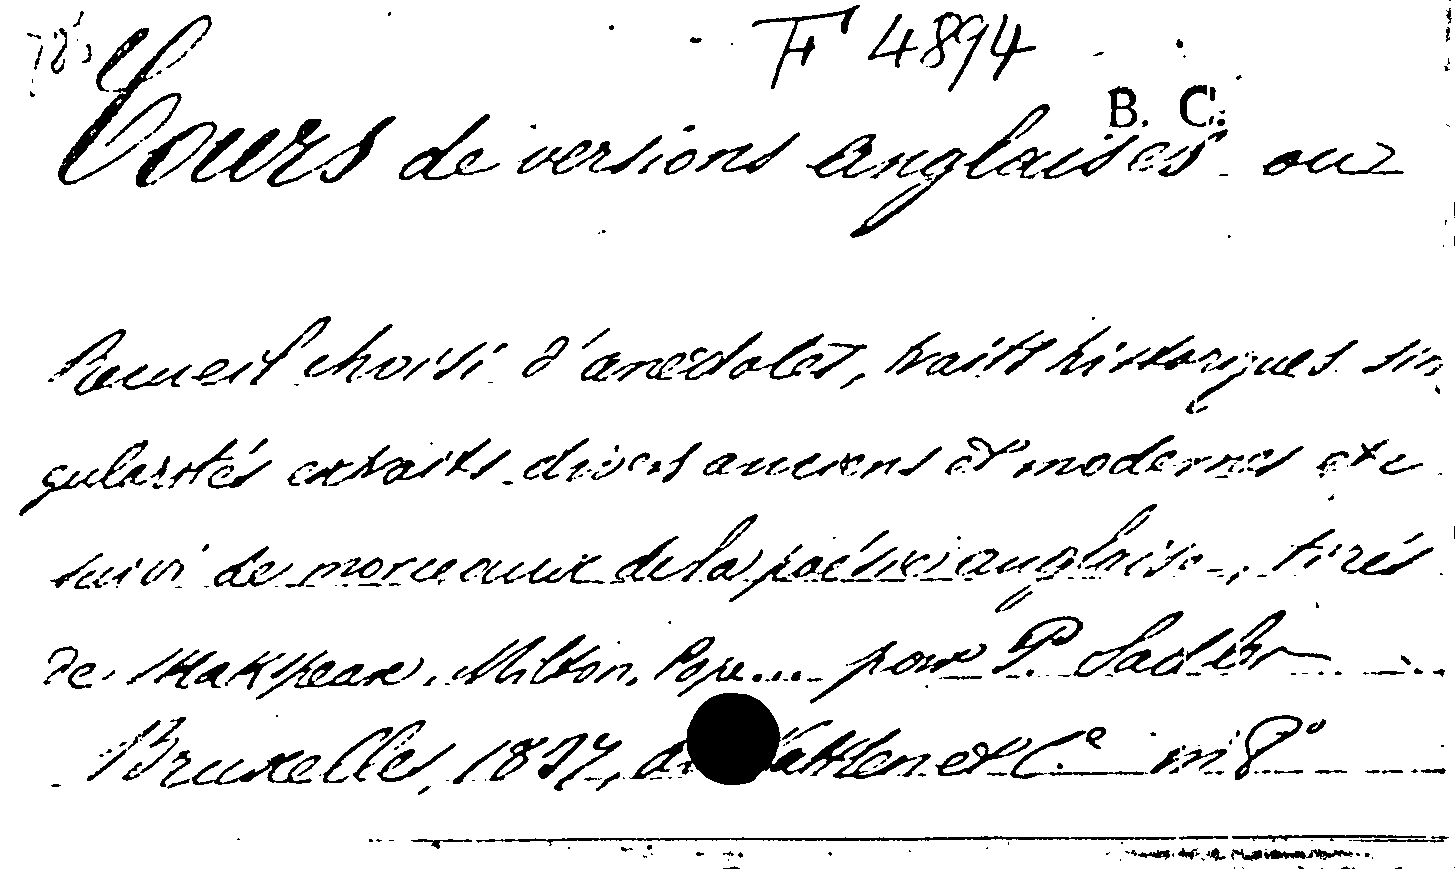 F 4894
B. C.
Cours de versions anglaises ou
Recueil choisi d'anecdotes, traits historiques sin
gularités extraits divers anciens et modernes etc
suivi de morceaux de la poésie anglaise, tirés
de Shakspeare, Milton, Pope... pour P. Sadler
Bruxelles, 1837, et Cᵉ in 8°